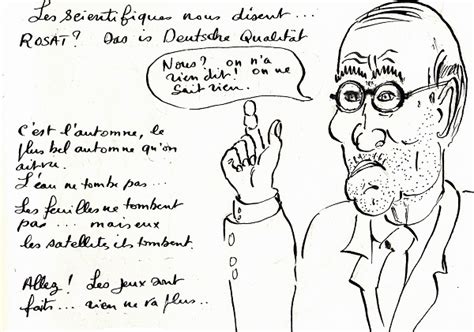 Les scientifiques nous disent...
ROSAT? Das is Deutsche Qualität
Nous? on n'a
rien dit! on ne
sait rien.
C'est l'automne, le
plus bel automne qu'on
ait vu.
L'eau ne tombe pas...
Les feuilles ne tombent
pas ... mais eux
les satellites, ils tombent.
Allez! Les jeux sont
faits... rien ne va plus..